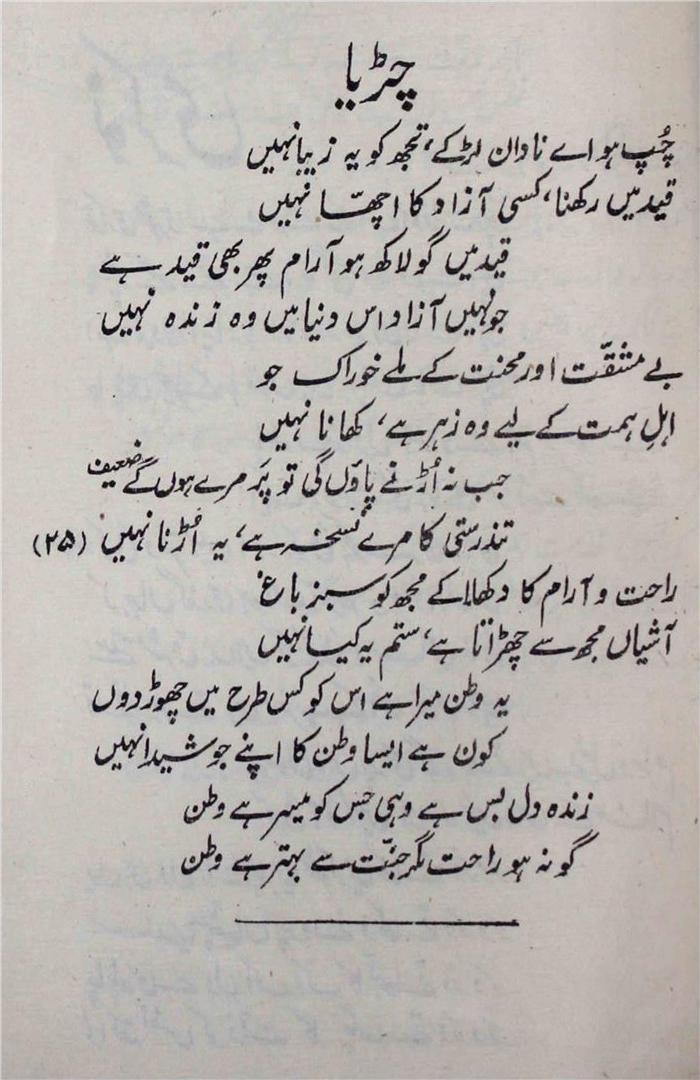 چڑیا
چُپ ہو اے نادان لڑکے، تجھ کو یہ زیبا نہیں
قید میں رکھنا، کسی آزاد کا اچھّا نہیں
قید میں گو لاکھ ہو آرام پھر بھی قید ہے
جو نہیں آزاد اس دنیا میں وہ زندہ نہیں
بے مشقّت اور محنت کے ملے خوراک جو
اہلِ ہمت کے لیے وہ زہر ہے، کھانا نہیں
جب نہ اُڑنے پاؤں گی تو پَر مرے ہوں گے ضعیف
تندرستی کا مرے نُسخہ ہے، یہ اُڑنا نہیں (۲۵)
راحت و آرام کا دکھلا کے مجھ کو سبز باغ
آشیاں مجھ سے چھڑاتا ہے، ستم یہ کیسا نہیں
یہ وطن میرا ہے اس کو کس طرح میں چھوڑ دوں
کون ہے ایسا وطن کا اپنے جو شیدا نہیں
زندہ دل بس ہے وہی جس کو میسر ہے وطن
گو نہ ہو راحت مگر جنّت سے بہتر ہے وطن